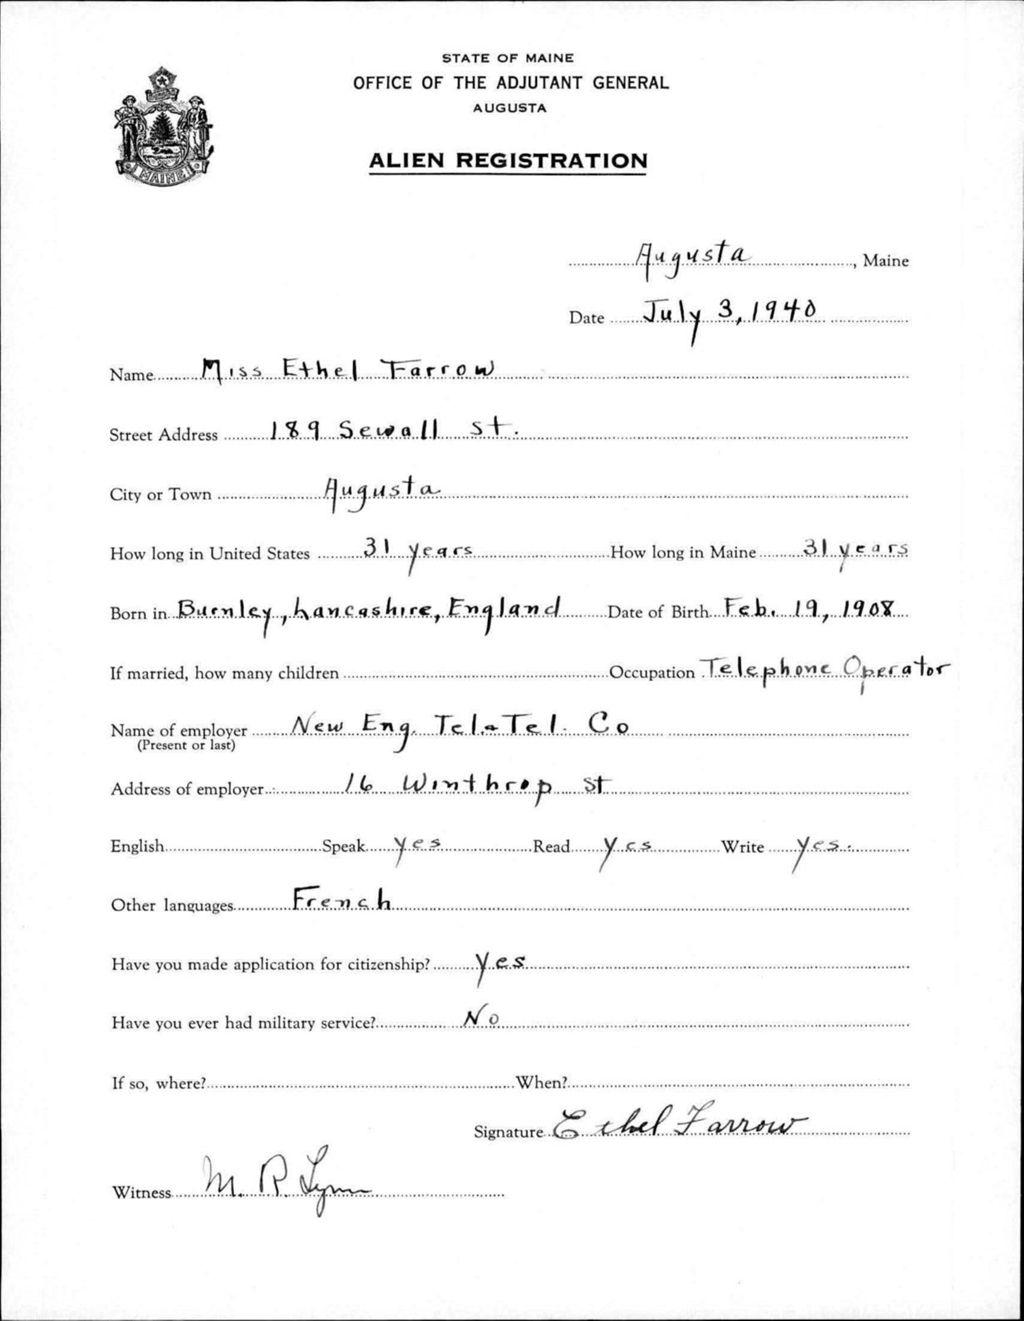 STATE OF MAINE
OFFICE OF THE ADJUTANT GENERAL
AUGUSTA
ALIEN REGISTRATION
MAINE
Augusta, Maine
Date July 3, 1940
Name Miss Ethel Farrow
Street Address 189 Sewall St.
City or Town Augusta
How long in United States 31 years How long in Maine 31 years
Born in Burnley, Lancashire, England Date of Birth Feb. 19, 1908
If married, how many children Occupation Telephone Operator
Name of employer New Eng. Tel. & Tel. Co
(Present or last)
Address of employer 16 Winthrop St
English Speak yes Read yes Write yes.
Other languages French
Have you made application for citizenship? yes
Have you ever had military service? No
If so, where? When?
Signature Ethel Farrow
Witness M. R. Lynn